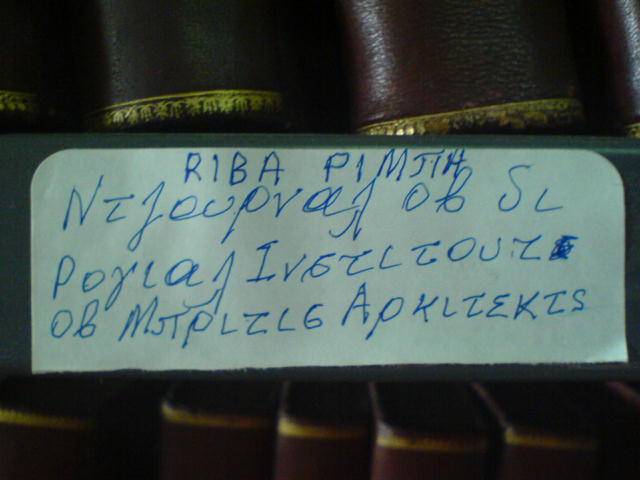 RIBA ΡΙΜΠΑ
Ντζουρναλ οβ δι
Ρογιαλ Ινστιτουτ
οβ Μπριτις Αρκιτεκτς